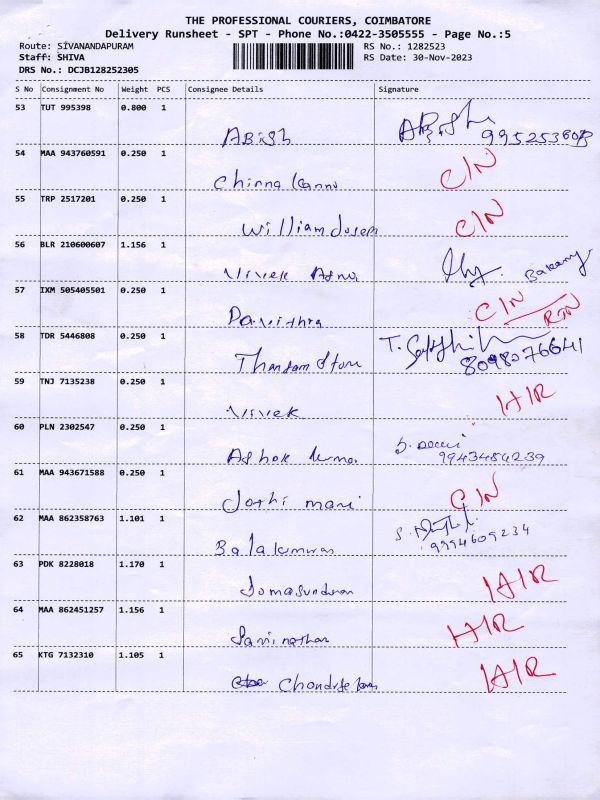 THE PROFESSIONAL COURIERS, COIMBATORE
Delivery Runsheet - SPT - Phone No.:0422-3505555 - Page No.:5
Route: SIVANANDAPURAM RS No.: 1282523
Staff: SHIVA RS Date: 30-Nov-2023
DRS No.: DCJB128252305
S No Consignment No Weight PCS Consignee Details Signature
53 TUT 995398 0.800 1
ABISH
54 MAA 943760591 0.250 1
Chinna Kannu C/N
55 TRP 2517201 0.250 1
William Joseph C/N
56 BLR 210600607 1.156 1
Vivek Bakery
57 IXM 505405501 0.250 1
Pavithra C/N RTN
58 TDR 5446808 0.250 1
T. 8098076641
59 TNJ 7135238 0.250 1
Vivek H/R
60 PLN 2302547 0.250 1
Ashok Kumar 9943484239
61 MAA 943671588 0.250 1
Jothi mani C/N
62 MAA 862358763 1.101 1
Balakumar 9994609234
63 PDK 8228018 1.170 1
Somasundaram H/R
64 MAA 862451257 1.156 1
H/R
65 KTG 7132310 1.105 1
H/R